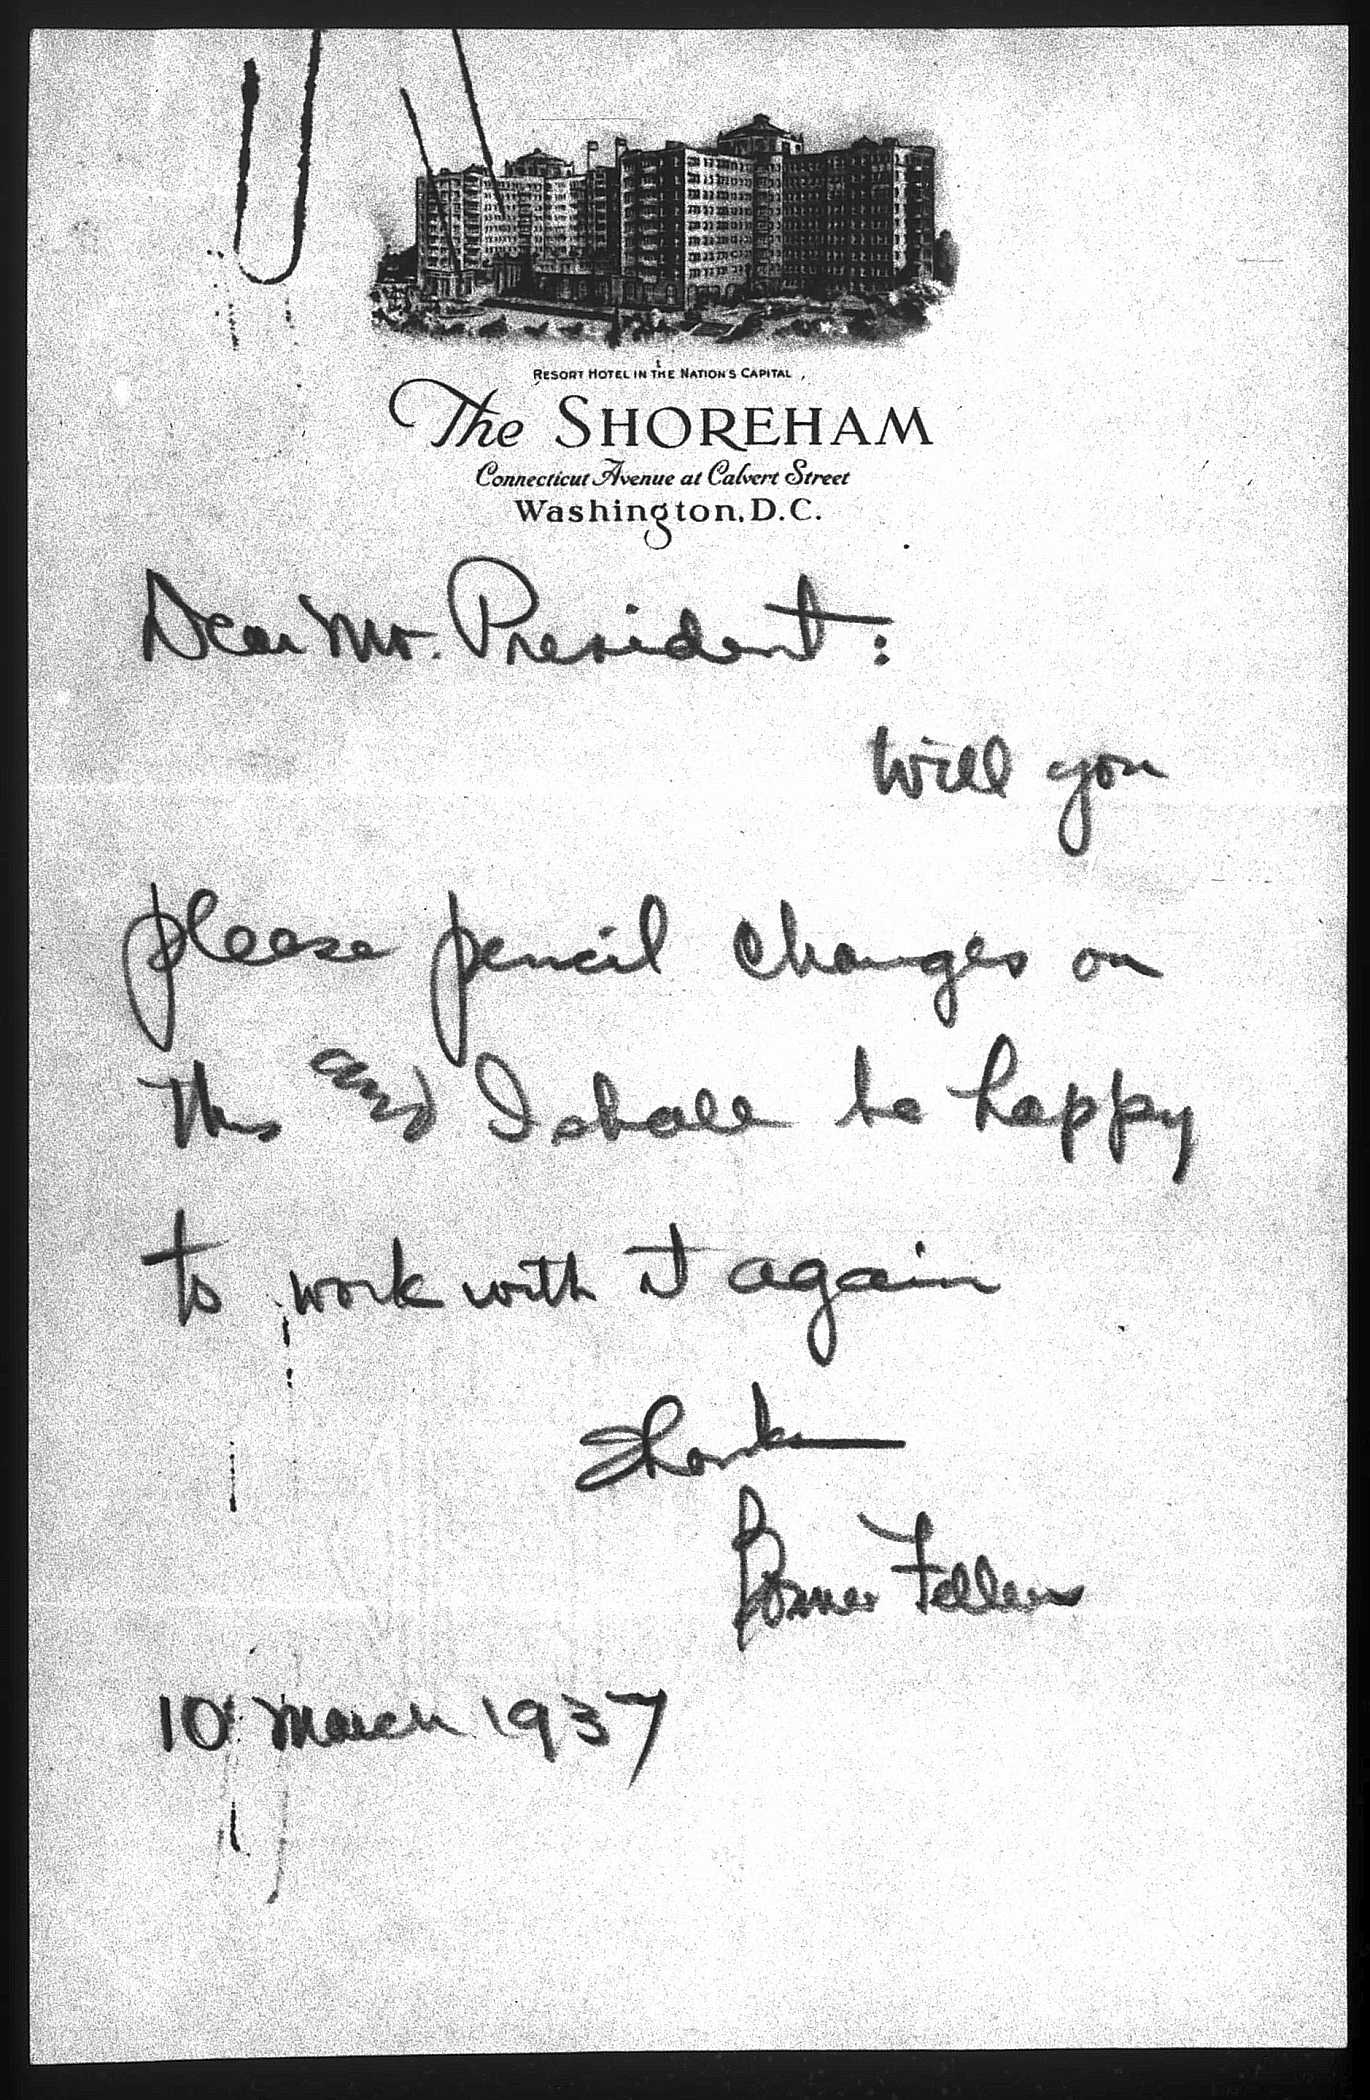 RESORT HOTEL IN THE NATION'S CAPITAL
The SHOREHAM
Connecticut Avenue at Calvert Street
Washington, D.C.
Dear Mr. President:
Will you
please pencil changes on
this and I shall be happy
to work with it again
Thanks
Bonner Fellers
10 March 1937